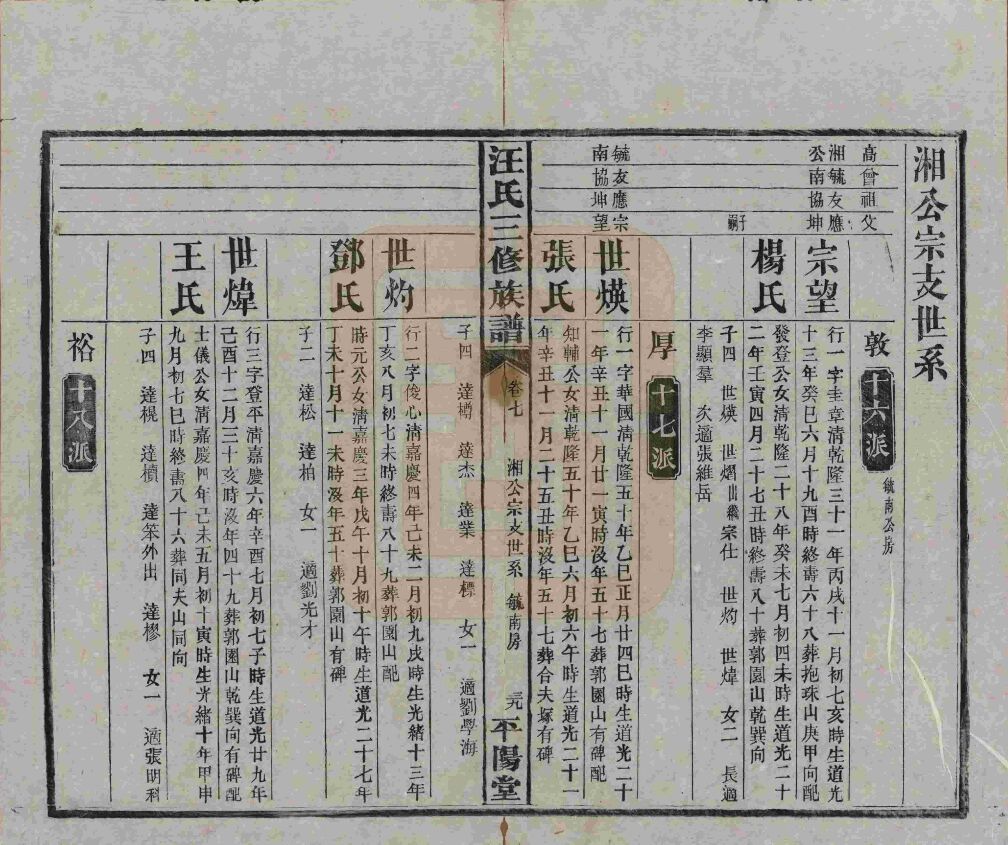 湘公宗支世系
高曾祖父
湘毓友應
公南協坤
敦 十六派 毓南公房
宗望
行一字圭章清乾隆三十一年丙戌十一月初七亥時生道光
十三年癸巳六月十九酉時終壽六十八葬抱珠山庚甲向配
楊氏
發登公女清乾隆二十八年癸未七月初四未時生道光二十
二年壬寅四月二十七丑時終壽八十葬郭園山乾巽向
子四 世煐 世熠出繼宗仕 世灼 世煒 女二 長適
李顯羣 次適張維岳
厚 十七派
毓友應宗
南協坤望
世煐
行一字華國清乾隆五十年乙巳正月廿四巳時生道光二十
一年辛丑十一月廿一寅時沒年五十七葬郭園山有碑配
張氏
知輔公女清乾隆五十年乙巳六月初六午時生道光二十一
年辛丑十一月二十五丑時沒年五十七葬合夫塚有碑
汪氏三修族譜 卷七 湘公宗支世系 毓南房 三九 平陽堂
子四 達樽 達杰 達業 達標 女一 適劉學海
世灼
行二字俊心清嘉慶四年己未二月初九戌時生光緒十三年
丁亥八月初七未時終壽八十九葬郭園山配
鄧氏
時元公女清嘉慶三年戊午十月初十午時生道光二十七年
丁未十月十一未時沒年五十葬郭園山有碑
子二 達松 達柏 女一 適劉光才
世煒
行三字登平清嘉慶六年辛酉七月初七子時生道光廿九年
己酉十二月三十亥時沒年四十九葬郭園山乾巽向有碑配
王氏
士儀公女清嘉慶四年己未五月初十寅時生光緒十年甲申
九月初七巳時終壽八十六葬同夫山同向
子四 達梘 達楨 達笨外出 達樛 女一 適張明科
裕 十八派